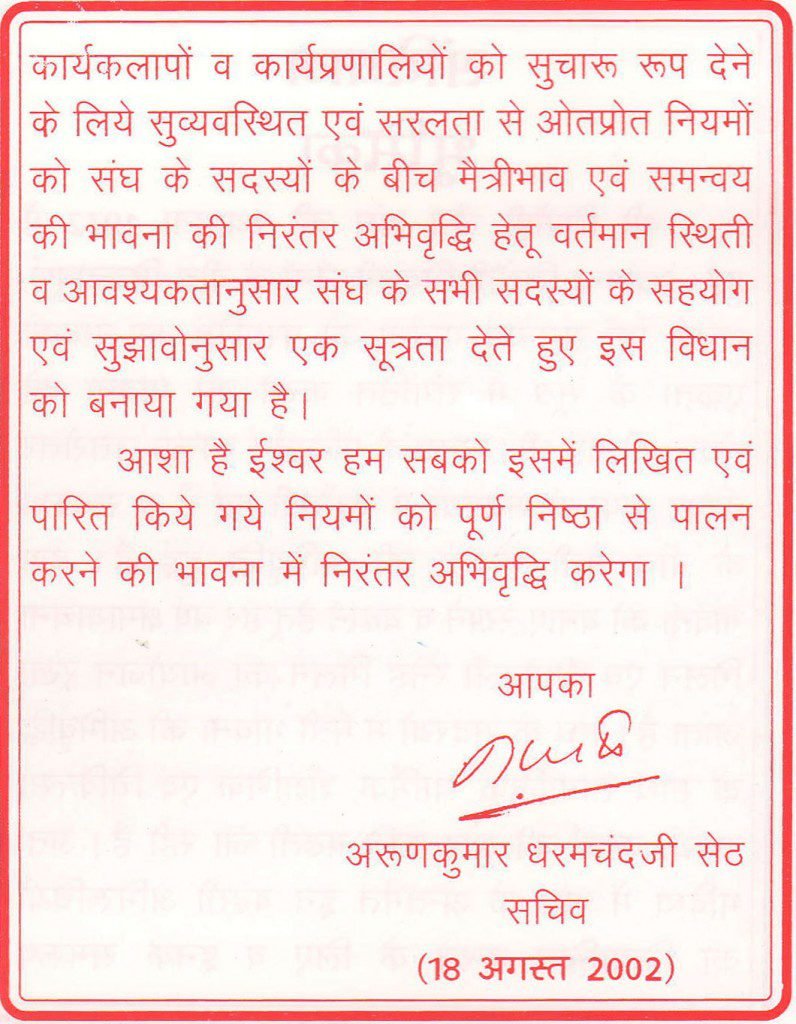 कार्यकलापों व कार्यप्रणालियों को सुचारू रूप देने
के लिये सुव्यवस्थित एवं सरलता से ओतप्रोत नियमों
को संघ के सदस्यों के बीच मैत्रीभाव एवं समन्वय
की भावना की निरंतर अभिवृद्धि हेतू वर्तमान स्थिती
व आवश्यकतानुसार संघ के सभी सदस्यों के सहयोग
एवं सुझावोनुसार एक सूत्रता देते हुए इस विधान
को बनाया गया है।
आशा है ईश्वर हम सबको इसमें लिखित एवं
पारित किये गये नियमों को पूर्ण निष्ठा से पालन
करने की भावना में निरंतर अभिवृद्धि करेगा ।
आपका
अरूणकुमार धरमचंदजी सेठ
सचिव
(18 अगस्त 2002)